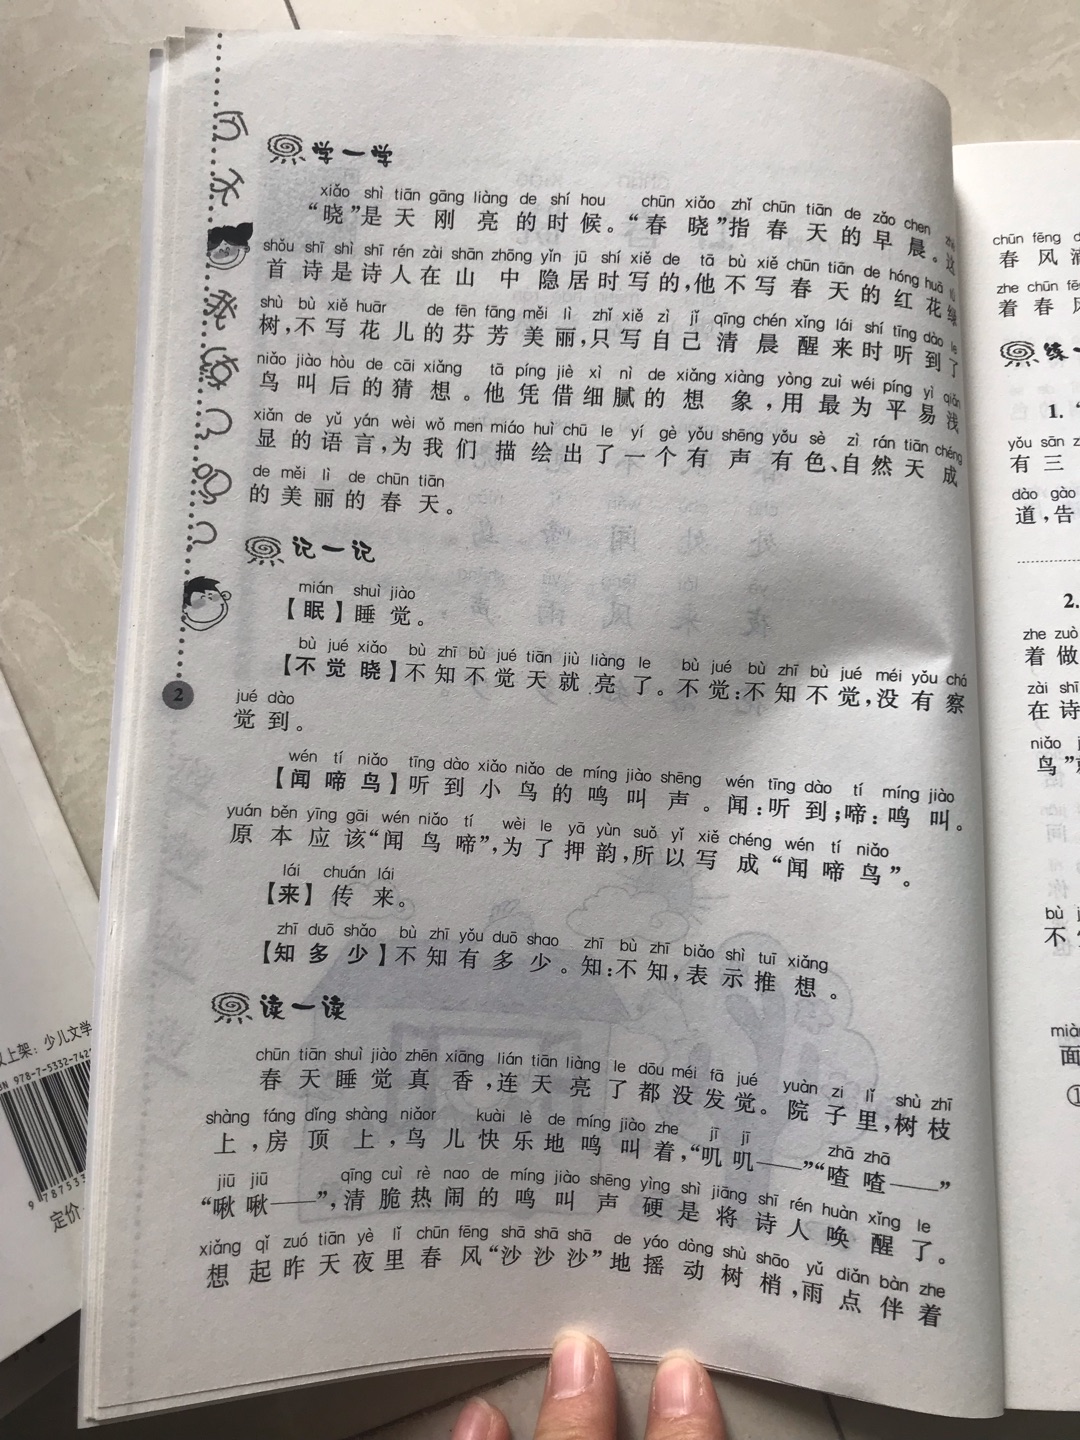 学一学
xiǎo shì tiān gāng liàng de shí hou chūn xiǎo zhǐ chūn tiān de zǎo chen zhè
“晓”是天刚亮的时候。“春晓”指春天的早晨。这
shǒu shī shì shī rén zài shān zhōng yǐn jū shí xiě de tā bù xiě chūn tiān de hóng huā lǜ
首诗是诗人在山中隐居时写的,他不写春天的红花绿
shù bù xiě huār de fēn fāng měi lì zhǐ xiě zì jǐ qīng chén xǐng lái shí tīng dào le
树,不写花儿的芬芳美丽,只写自己清晨醒来时听到了
niǎo jiào hòu de cāi xiǎng tā píng jiè xì nì de xiǎng xiàng yòng zuì wéi píng yì qiǎn
鸟叫后的猜想。他凭借细腻的想象,用最为平易浅
xiǎn de yǔ yán wèi wǒ men miáo huì chū le yí gè yǒu shēng yǒu sè zì rán tiān chéng
显的语言,为我们描绘出了一个有声有色、自然天成
de měi lì de chūn tiān
的美丽的春天。
记一记
mián shuì jiào
【眠】睡觉。
bù jué xiǎo bù zhī bù jué tiān jiù liàng le bù jué bù zhī bù jué méi yǒu chá
【不觉晓】不知不觉天就亮了。不觉:不知不觉,没有察
jué dào
觉到。
wén tí niǎo tīng dào xiǎo niǎo de míng jiào shēng wén tīng dào tí míng jiào
【闻啼鸟】听到小鸟的鸣叫声。闻:听到;啼:鸣叫。
yuán běn yīng gāi wén niǎo tí wèi le yā yùn suǒ yǐ xiě chéng wén tí niǎo
原本应该“闻鸟啼”,为了押韵,所以写成“闻啼鸟”。
lái chuán lái
【来】传来。
zhī duō shǎo bù zhī yǒu duō shao zhī bù zhī biǎo shì tuī xiǎng
【知多少】不知有多少。知:不知,表示推想。
读一读
chūn tiān shuì jiào zhēn xiāng lián tiān liàng le dōu méi fā jué yuàn zi lǐ shù zhī
春天睡觉真香,连天亮了都没发觉。院子里,树枝
shàng fáng dǐng shàng niǎor kuài lè de míng jiào zhe jī jī zhā zhā
上,房顶上,鸟儿快乐地鸣叫着,“叽叽——”“喳喳——”
jiū jiū qīng cuì rè nao de míng jiào shēng yìng shì jiāng shī rén huàn xǐng le
“啾啾——”,清脆热闹的鸣叫声硬是将诗人唤醒了。
xiǎng qǐ zuó tiān yè lǐ chūn fēng shā shā shā de yáo dòng shù shāo yǔ diǎn bàn zhe
想起昨天夜里春风“沙沙沙”地摇动树梢,雨点伴着
2
chūn fēng
春风
zhe chūn
着春风
1.
yǒu sān
有三
dào gào
道,告
2.
zhe zuò
着做
zài shī
在诗
niǎo
鸟”
bù
不
miàn
面
议上架:少儿文学
978-7-5332-742
定价